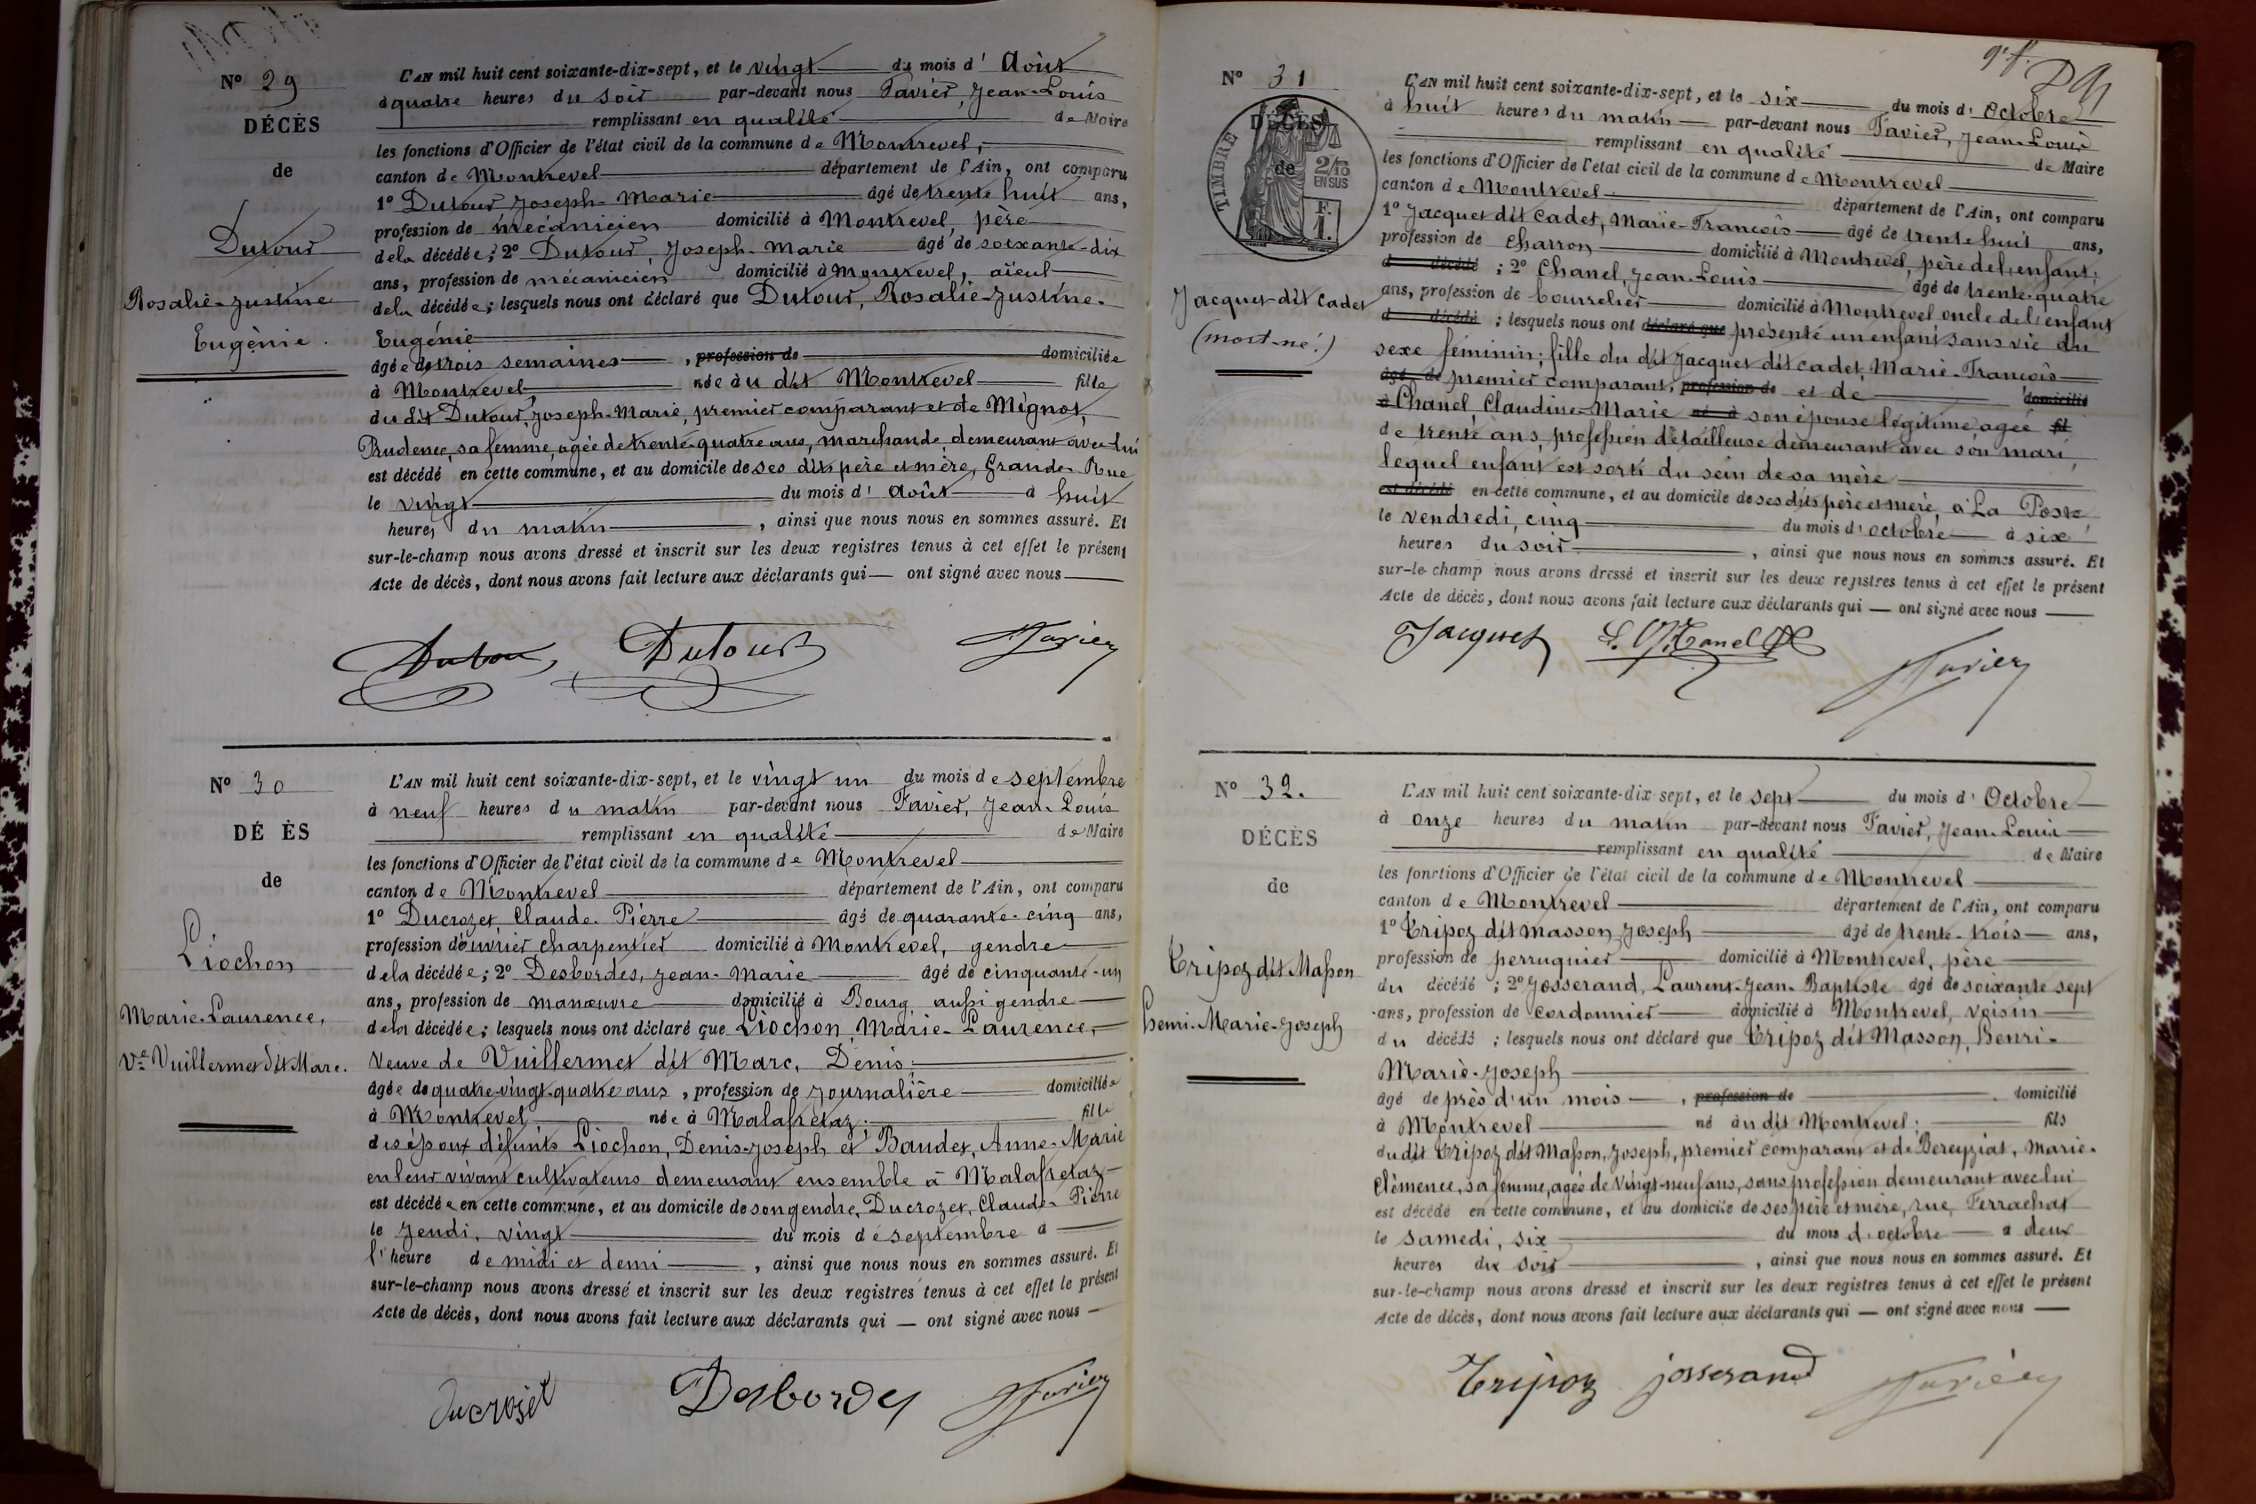 N° 29
DÉCÈS
de
Dutour
Rosalie-Justine
Eugénie.
L'AN mil huit cent soixante-dix-sept, et le vingt du mois d' Août
à quatre heures du soir par-devant nous Favier, Jean-Louis
remplissant en qualité de Maire
les fonctions d'Officier de l'état civil de la commune de Montrevel,
canton de Montrevel département de l'Ain, ont comparu
1° Dutour Joseph-Marie âgé de trente huit ans,
profession de mécanicien domicilié à Montrevel, père
de la décédée; 2° Dutour, Joseph-Marie âgé de soixante-dix
ans, profession de mécanicien domicilié à Montrevel, aïeul
de la décédée; lesquels nous ont déclaré que Dutour, Rosalie-Justine-
Eugénie
âgée de trois semaines, profession de domiciliée
à Montrevel née au dit Montrevel fille
du dit Dutour, Joseph-Marie, premier comparant et de Mignot,
Prudence, sa femme, agée de trente-quatre ans, marchande, demeurant avec lui
est décédé en cette commune, et au domicile de ses dits père et mère, Grande Rue
le vingt du mois d' Août à huit
heures du matin, ainsi que nous nous en sommes assuré. Et
sur-le-champ nous avons dressé et inscrit sur les deux registres tenus à cet effet le présent
Acte de décès, dont nous avons fait lecture aux déclarants qui — ont signé avec nous
Dutour Dutour Favier
N° 30
DÉ ÈS
de
Liochon
Marie-Laurence,
Vve Vuillermet dit Marc.
L'AN mil huit cent soixante-dix-sept, et le vingt un du mois de septembre
à neuf heures du matin par-devant nous Favier, Jean-Louis
remplissant en qualité de Maire
les fonctions d'Officier de l'état civil de la commune de Montrevel
canton de Montrevel département de l'Ain, ont comparu
1° Ducrozet, Claude-Pierre âgé de quarante-cinq ans,
profession d'ouvrier charpentier domicilié à Montrevel, gendre
de la décédée; 2° Desbordes, Jean-Marie âgé de cinquante-un
ans, profession de manœuvre domicilié à Bourg, aussi gendre
de la décédée; lesquels nous ont déclaré que Liochon, Marie-Laurence,
veuve de Vuillermet dit Marc, Denis,
âgée de quatre-vingt-quatre ans, profession de journalière domiciliée
à Montrevel née à Malafretaz, fille
des époux défunts Liochon, Denis-Joseph et Baudet, Anne-Marie
en leur vivant cultivateurs demeurant ensemble à Malafretaz
est décédée en cette commune, et au domicile de son gendre, Ducrozet, Claude-Pierre
le jeudi, vingt du mois de septembre à
l'heure de midi et demi, ainsi que nous nous en sommes assuré. Et
sur-le-champ nous avons dressé et inscrit sur les deux registres tenus à cet effet le présent
Acte de décès, dont nous avons fait lecture aux déclarants qui — ont signé avec nous —
Ducrozet Desbordes Favier
N° 31
DÉCÈS
de
TIMBRE
2/10
EN SUS
F.
1.
Jacquet dit Cadet
(mort-né.)
L'AN mil huit cent soixante-dix-sept, et le six du mois d' Octobre
à huit heures du matin par-devant nous Favier, Jean-Louis
remplissant en qualité de Maire
les fonctions d'Officier de l'état civil de la commune de Montrevel
canton de Montrevel département de l'Ain, ont comparu
1° Jacquet dit Cadet, Marie-François âgé de trente huit ans,
profession de charron domicilié à Montrevel, père de l'enfant,
d décédé; 2° Chanel, Jean-Louis âgé de trente-quatre
ans, profession de bourrelier domicilié à Montrevel oncle de l'enfant
d décédé; lesquels nous ont déclaré que présenté un enfant sans vie du
sexe féminin, fille du dit Jacquet dit Cadet, Marie-François
âgé de premier comparant, profession de et de domicilié
à Chanel, Claudine-Marie né à son épouse légitime agée fil
de trente ans, profession détailleuse demeurant avec son mari,
lequel enfant est sorti du sein de sa mère
est décédé en cette commune, et au domicile de ses dits père et mère, à La Poste,
le vendredi, cinq du mois d'octobre à six
heures du soir, ainsi que nous nous en sommes assuré. Et
sur-le-champ nous avons dressé et inscrit sur les deux registres tenus à cet effet le présent
Acte de décès, dont nous avons fait lecture aux déclarants qui — ont signé avec nous —
Jacquet L. Chanel Favier
N° 32.
DÉCÈS
de
Tripoz dit Masson
Henri-Marie-Joseph
L'AN mil huit cent soixante-dix sept, et le sept du mois d' Octobre
à onze heures du matin par-devant nous Favier, Jean-Louis
remplissant en qualité de Maire
les fonctions d'Officier de l'état civil de la commune de Montrevel
canton de Montrevel département de l'Ain, ont comparu
1° Tripoz dit Masson, Joseph âgé de trente-trois ans,
profession de perruquier domicilié à Montrevel, père
du décédé; 2° Josserand, Laurent-Jean-Baptiste âgé de soixante sept
ans, profession de cordonnier domicilié à Montrevel, voisin
du décédé; lesquels nous ont déclaré que Tripoz dit Masson, Henri-
Marie-Joseph
âgé de près d'un mois, profession de domicilié
à Montrevel né au dit Montrevel; fils
du dit Tripoz dit Masson, Joseph, premier comparant et de Bereyziat, Marie-
Clémence, sa femme, agée de vingt-neuf ans, sans profession demeurant avec lui
est décédé en cette commune, et au domicile de ses père et mère, rue Ferrachat
le samedi, six du mois d'octobre à deux
heures du soir, ainsi que nous nous en sommes assuré. Et
sur-le-champ nous avons dressé et inscrit sur les deux registres tenus à cet effet le présent
Acte de décès, dont nous avons fait lecture aux déclarants qui — ont signé avec nous —
Tripoz Josserand Favier